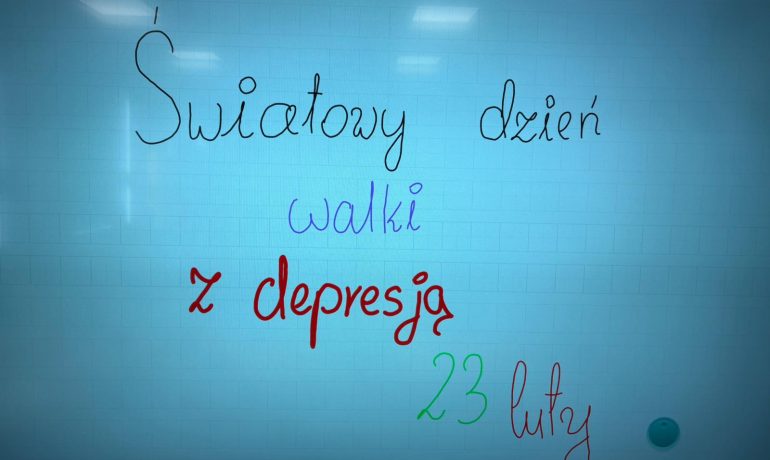 Światowy dzień
walki
z depresją
23 luty